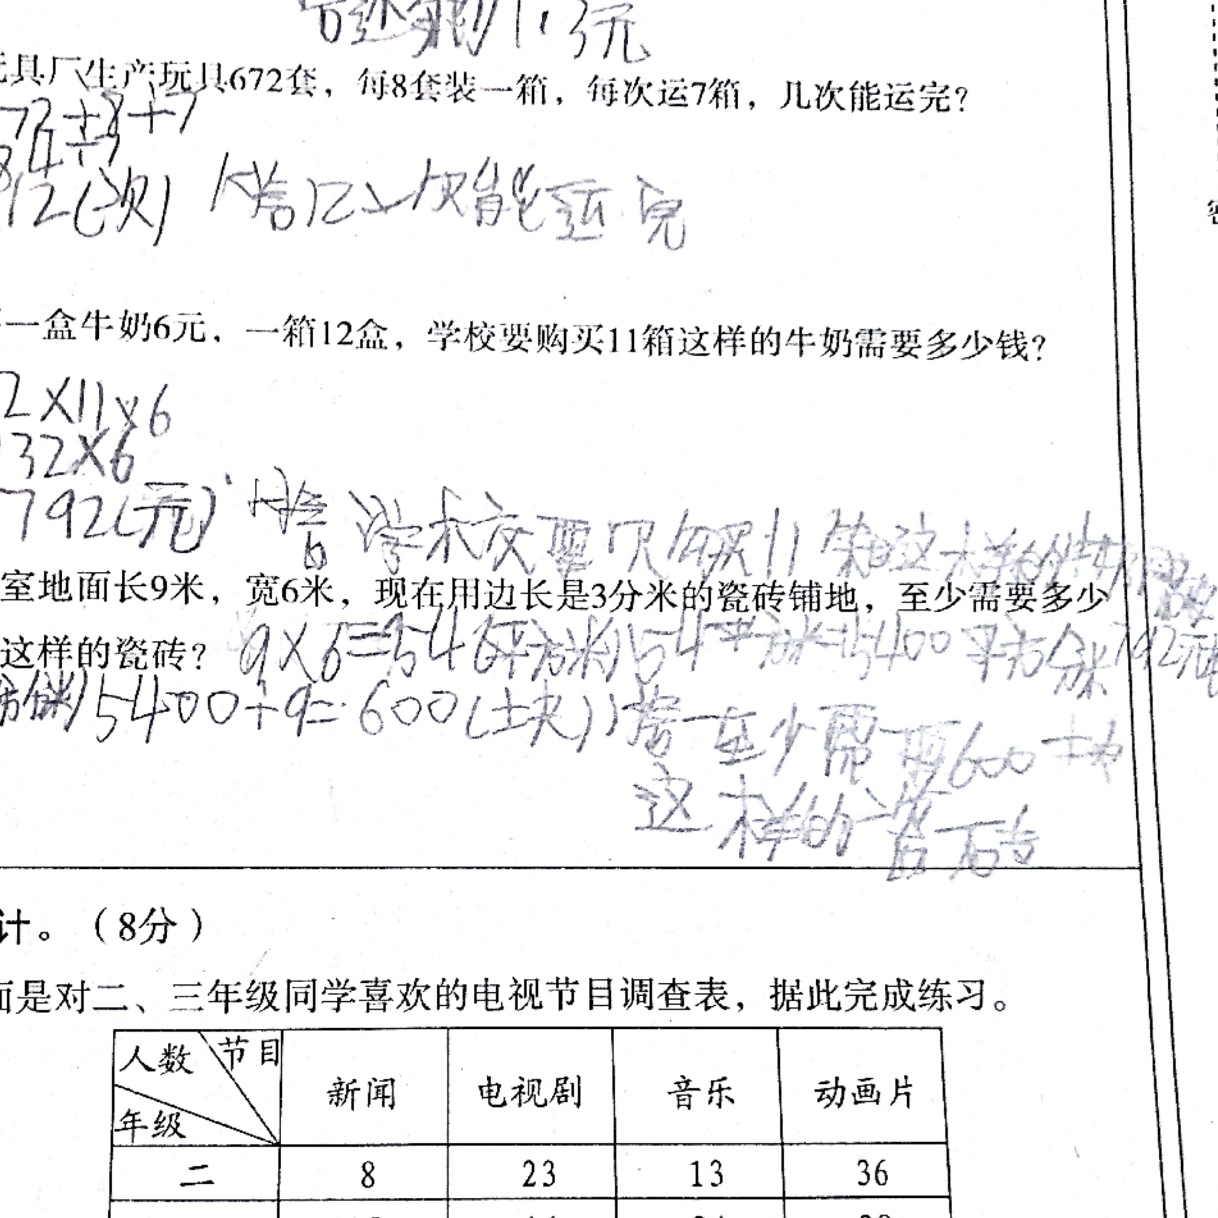 答还剩11.3元
玩具厂生产玩具672套，每8套装一箱，每次运7箱，几次能运完？
72÷8÷7
84÷7
12(次) 答12次能运完
一盒牛奶6元，一箱12盒，学校要购买11箱这样的牛奶需要多少钱？
2×11×6
132×6
792(元) 答学校要购买11箱这样的牛奶需要
室地面长9米，宽6米，现在用边长是3分米的瓷砖铺地，至少需要多少
792元
这样的瓷砖？ 9×6=54(平方米) 54平方米=5400平方分米
方分米) 5400÷9=600(块) 答至少需要600块
这样的瓷砖
计。（8分）
面是对二、三年级同学喜欢的电视节目调查表，据此完成练习。
人数 节目 年级 新闻 电视剧 音乐 动画片
二 8 23 13 36